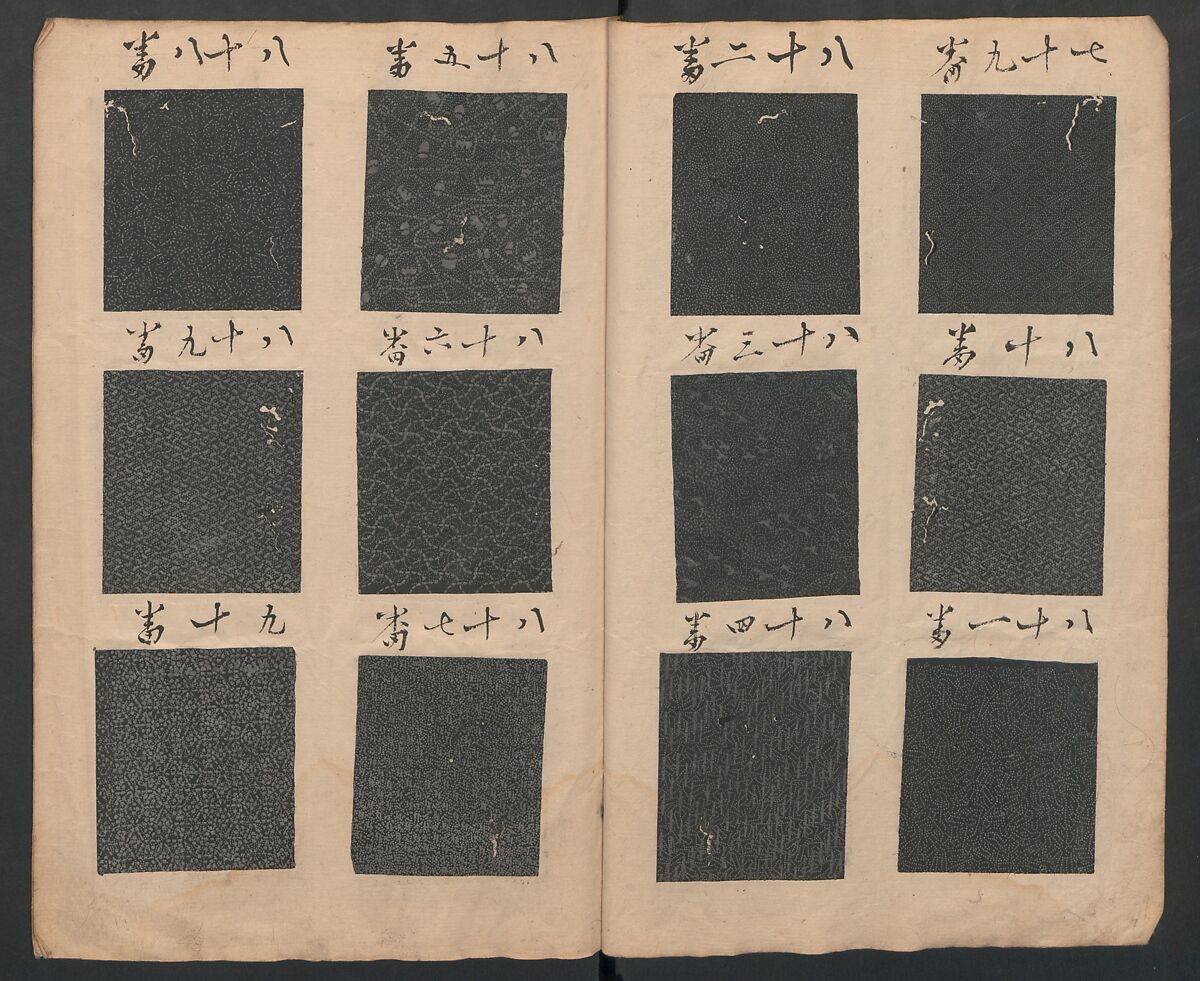 七十九番
八十番
八十一番
八十二番
八十三番
八十四番
八十五番
八十六番
八十七番
八十八番
八十九番
九十番